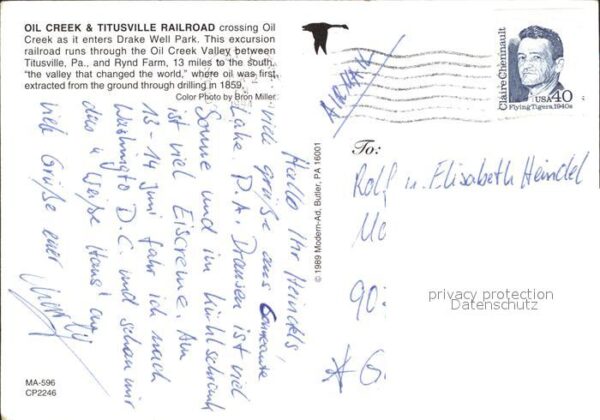 OIL CREEK & TITUSVILLE RAILROAD crossing Oil
Creek as it enters Drake Well Park. This excursion
railroad runs through the Oil Creek Valley between
Titusville, Pa., and Rynd Farm, 13 miles to the south,
"the valley that changed the world," where oil was first
extracted from the ground through drilling in 1859.
Color Photo by Bron Miller
AIRMAIL
Claire Chennault
USA 40
Flying Tigers, 1940s
Hallo Ihr Heindels,
viele Grüße aus Conneaute
Lake. P.A. Draussen ist viel
Sonne und im Kühlschrank
ist viel Eiscreme. Am
13-14 Juni fahr ich nach
Washington D.C. und schau mir
das "Weiße Haus" an
viele Grüße euer
© 1989 Modern-Ad, Butler, PA 16001
To:
Rolf u. Elisabeth Heindel
90
* G.
privacy protection
Datenschutz
MA-596
CP2246